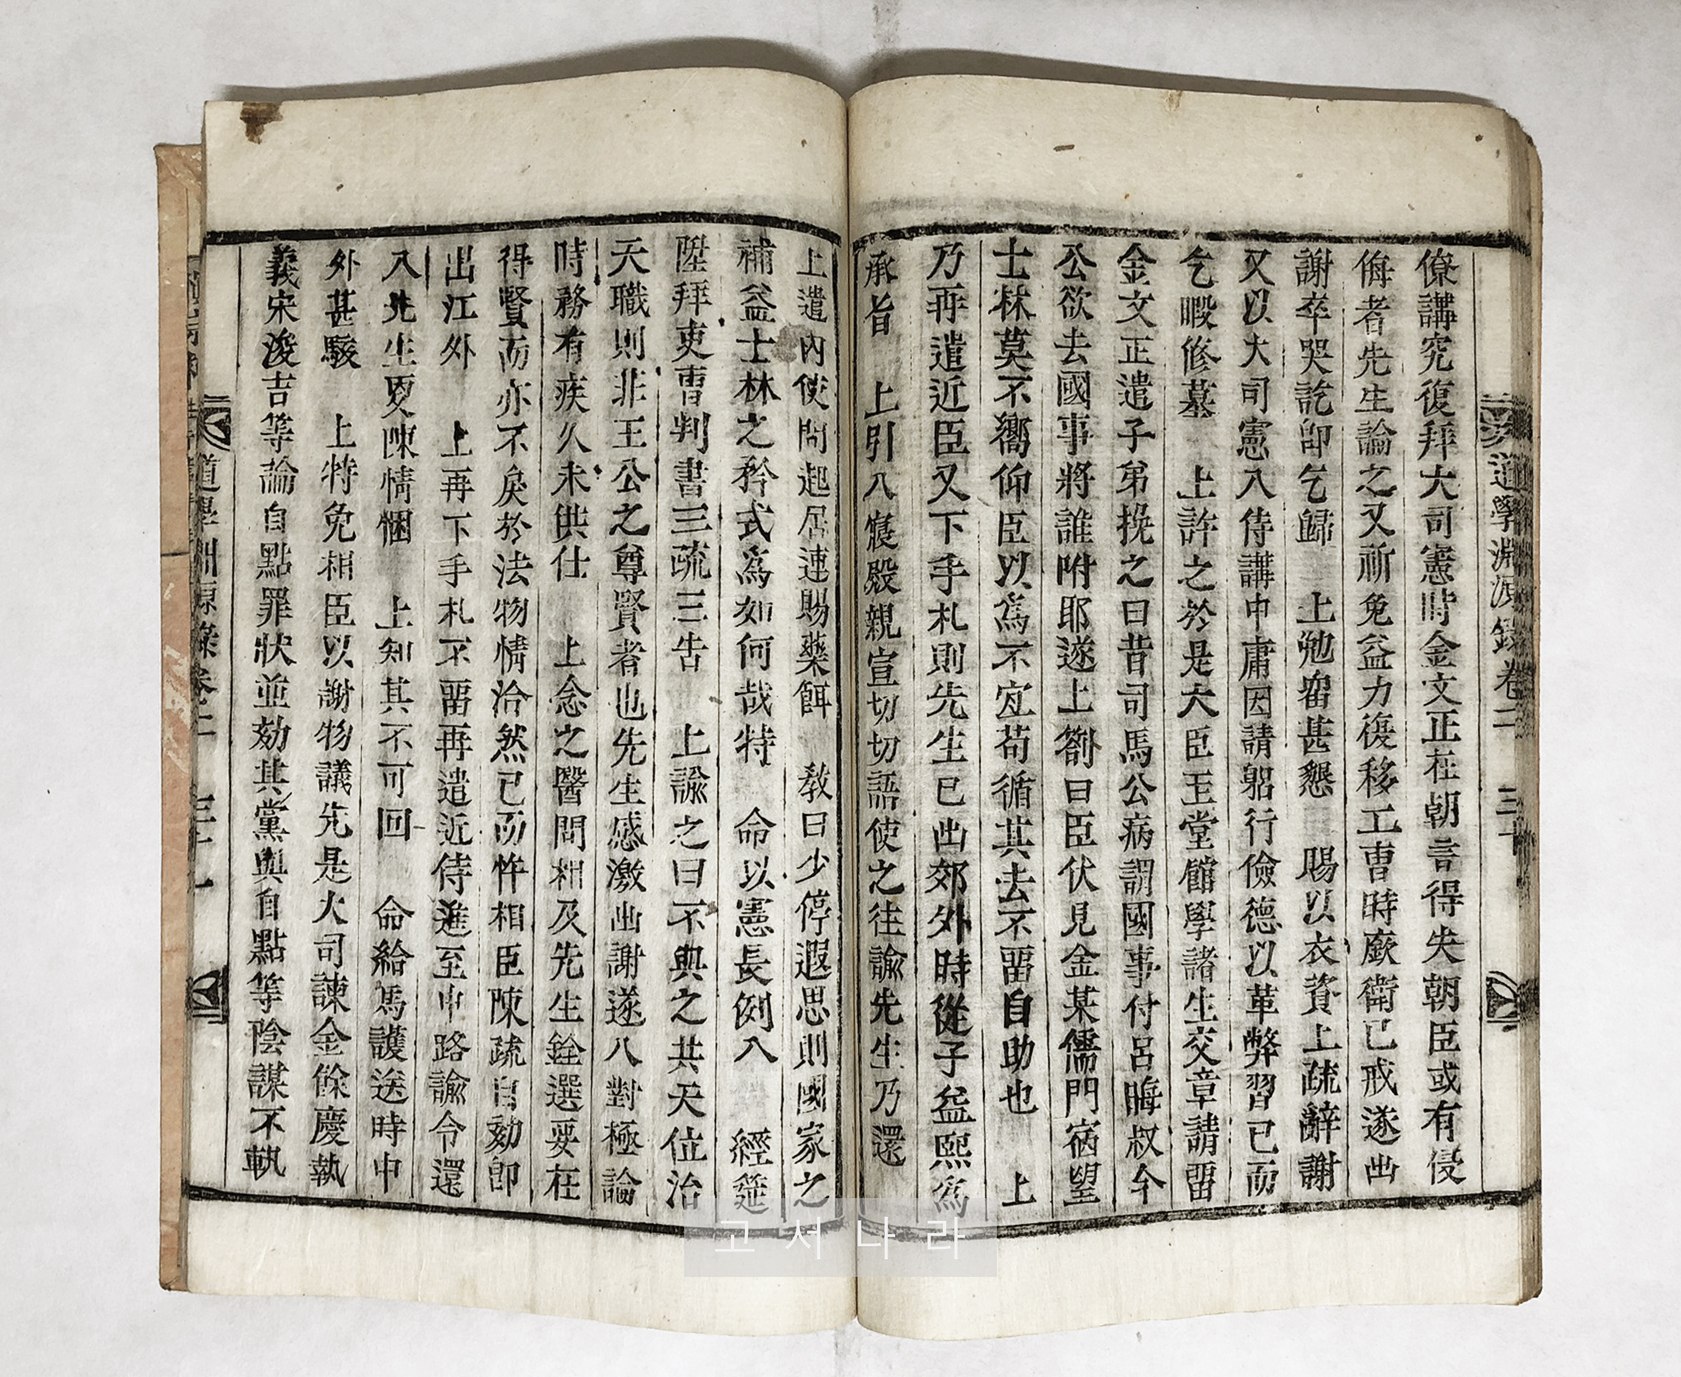 道學淵源錄卷二 三十
僚講究復拜大司憲時金文正在朝言得失朝臣或有侵
侮者先生論之又祈免益力復移工曺時蔽衛已戒遂出
謝卒哭訖卽乞歸 上勉留甚懇 賜以衣資上疏辭謝
又以大司憲入侍講中庸因請躬行儉德以革弊習已而
乞暇修墓 上許之於是大臣玉堂館學諸生交章請留
金文正遣子弟挽之曰昔司馬公病謂國事付呂晦叔今
公欲去國事將誰附耶遂上箚曰臣伏見金某儒門宿望
士林莫不嚮仰臣以爲不宜苟循其去不留自助也 上
乃再遣近臣又下手札則先生已出郊外時從子益熙爲
承旨 上引入寢殿親宣切切語使之往諭先生乃還
上遣內使問起居連賜藥餌 敎曰少停遐思則國家之
補益士林之矜式爲如何哉特 命以憲長例入 經筵
陞拜吏曺判書三疏三告 上諭之曰不與之共天位治
天職則非王公之尊賢者也先生感激出謝遂入對極論
時務有疾久未供仕 上念之醫問相及先生銓選要在
得賢而亦不戾於法物情洽然已而忤相臣陳疏自劾卽
出江外 上再下手札不留再遣近侍進至中路諭令還
入先生更陳情悃 上知其不可回 命給馬護送時中
外甚駭 上特免相臣以謝物議先是大司諫金餘慶執
義宋浚吉等論自點罪狀並劾其黨與自點等陰謀不軌
道學淵源錄卷二 三十一
고서나라